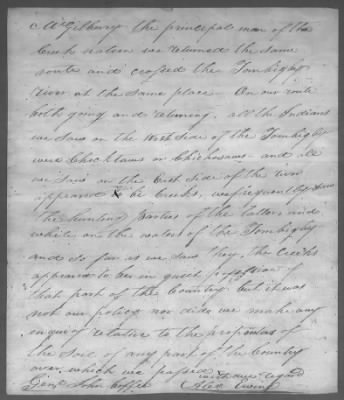 McGilbury the principal man of the
Creek nation we returned the same
route and crossed the Tombigby
river at the same place - On our route
both going and returning, all the Indians
we saw on the West side of the Tombigby
were Chocktaws or Chickesaws - and all
we saw on the East side of the river
appeared to be Creeks, we frequently saw
the hunting parties of the latter and
while on the waters of the Tombigby
and so far as we saw they, the Creeks
appeared to be in quiet possession of
that part of the Country but it was
not our policy nor did we make any
inquiry relative to the properties of
the Soil of any part of the Country
over which we passed
with due regard
Genl John Coffee Alex Ewing